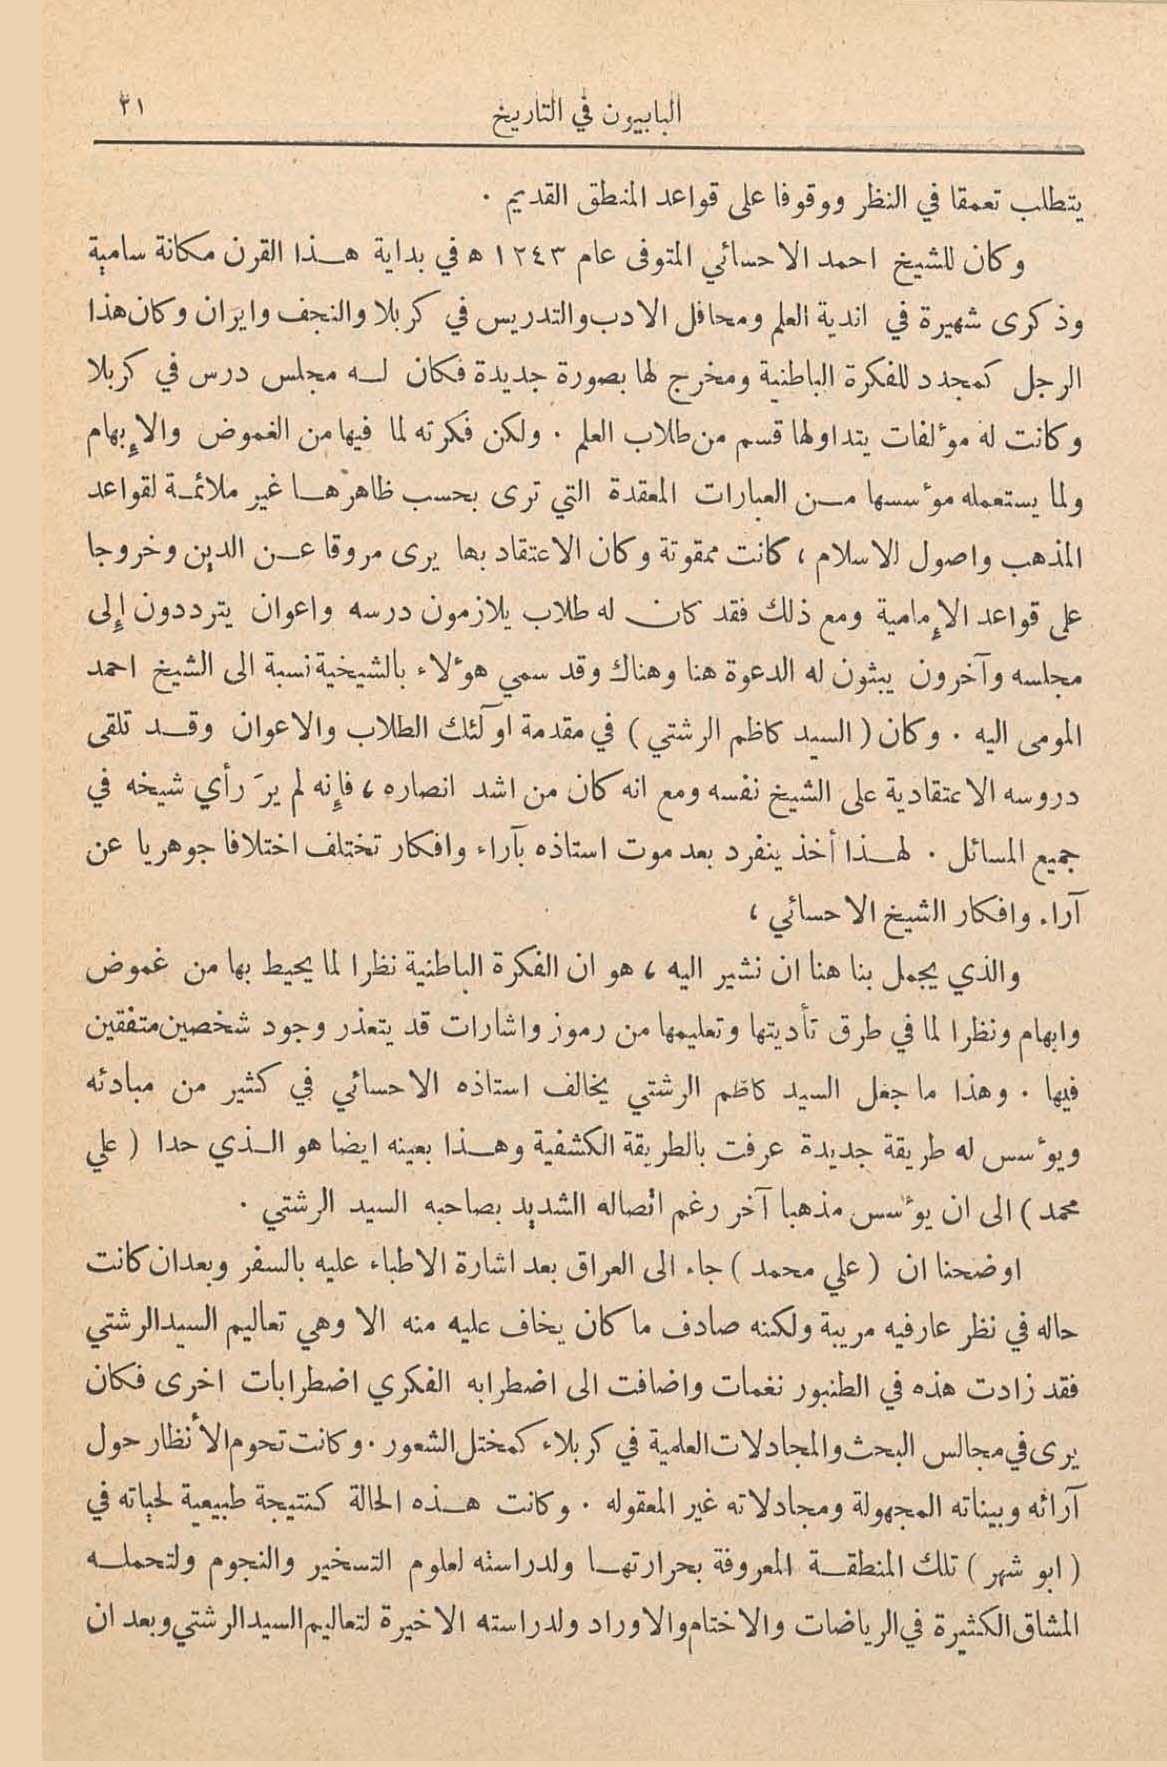 البابيون في التاريخ
٢١
يتطلب تعمقا في النظر ووقوفا على قواعد المنطق القديم .
وكان للشيخ احمد الاحسائي المتوفى عام ١٢٤٣ ه في بداية هـــذا القرن مكانة سامية
وذكرى شهيرة في اندية العلم ومحافل الادب والتدريس في كربلا والنجف وايران وكان هذا
الرجل كمجدد للفكرة الباطنية ومخرج لها بصورة جديدة فكان لــه مجلس درس في كربلا
وكانت له مؤلفات يتداولها قسم من طلاب العلم . ولكن فكرته لما فيها من الغموض والإبهام
ولما يستعمله مؤسسها مــن العبارات المعقدة التي ترى بحسب ظاهرهــا غير ملائمــة لقواعد
المذهب واصول الاسلام ، كانت ممقوتة وكان الاعتقاد بها يرى مروقا عــن الدين وخروجا
على قواعد الإمامية ومع ذلك فقد كان له طلاب يلازمون درسه واعوان يترددون إلى
مجلسه وآخرون يبثون له الدعوة هنا وهناك وقد سمي هؤلاء بالشيخية نسبة الى الشيخ احمد
المومى اليه . وكان ( السيد كاظم الرشتي ) في مقدمة اولئك الطلاب والاعوان وقــد تلقى
دروسه الاعتقادية على الشيخ نفسه ومع انه كان من اشد انصاره ، فإنه لم يرَ رأي شيخه في
جميع المسائل . لهــذا أخذ ينفرد بعد موت استاذه بآراء وافكار تختلف اختلافا جوهريا عن
آراء وافكار الشيخ الاحسائي ،
والذي يجمل بنا هنا ان نشير اليه ، هو ان الفكرة الباطنية نظرا لما يحيط بها من غموض
وابهام ونظرا لما في طرق تأديتها وتعليمها من رموز واشارات قد يتعذر وجود شخصين متفقين
فيها . وهذا ما جعل السيد كاظم الرشتي يخالف استاذه الاحسائي في كثير من مبادئه
ويؤسس له طريقة جديدة عرفت بالطريقة الكشفية وهــذا بعينه ايضا هو الــذي حدا ( علي
محمد ) الى ان يؤسس مذهبا آخر رغم اتصاله الشديد بصاحبه السيد الرشتي .
اوضحنا ان ( علي محمد ) جاء الى العراق بعد اشارة الاطباء عليه بالسفر وبعدان كانت
حاله في نظر عارفيه مريبة ولكنه صادف ما كان يخاف عليه منه الا وهي تعاليم السيد الرشتي
فقد زادت هذه في الطنبور نغمات واضافت الى اضطرابه الفكري اضطرابات اخرى فكان
يرى في مجالس البحث والمجادلات العلمية في كربلاء كمختل الشعور . وكانت تحوم الأنظار حول
آرائه وبيناته المجهولة ومجادلاته غير المعقوله . وكانت هــذه الحالة كنتيجة طبيعية لحياته في
( ابو شهر ) تلك المنطقــة المعروفة بحرارتهــا ولدراسته لعلوم التسخير والنجوم ولتحملــه
المشاق الكثيرة في الرياضات والاختام والاوراد ولدراسته الاخيرة لتعاليم السيد الرشتي وبعد ان